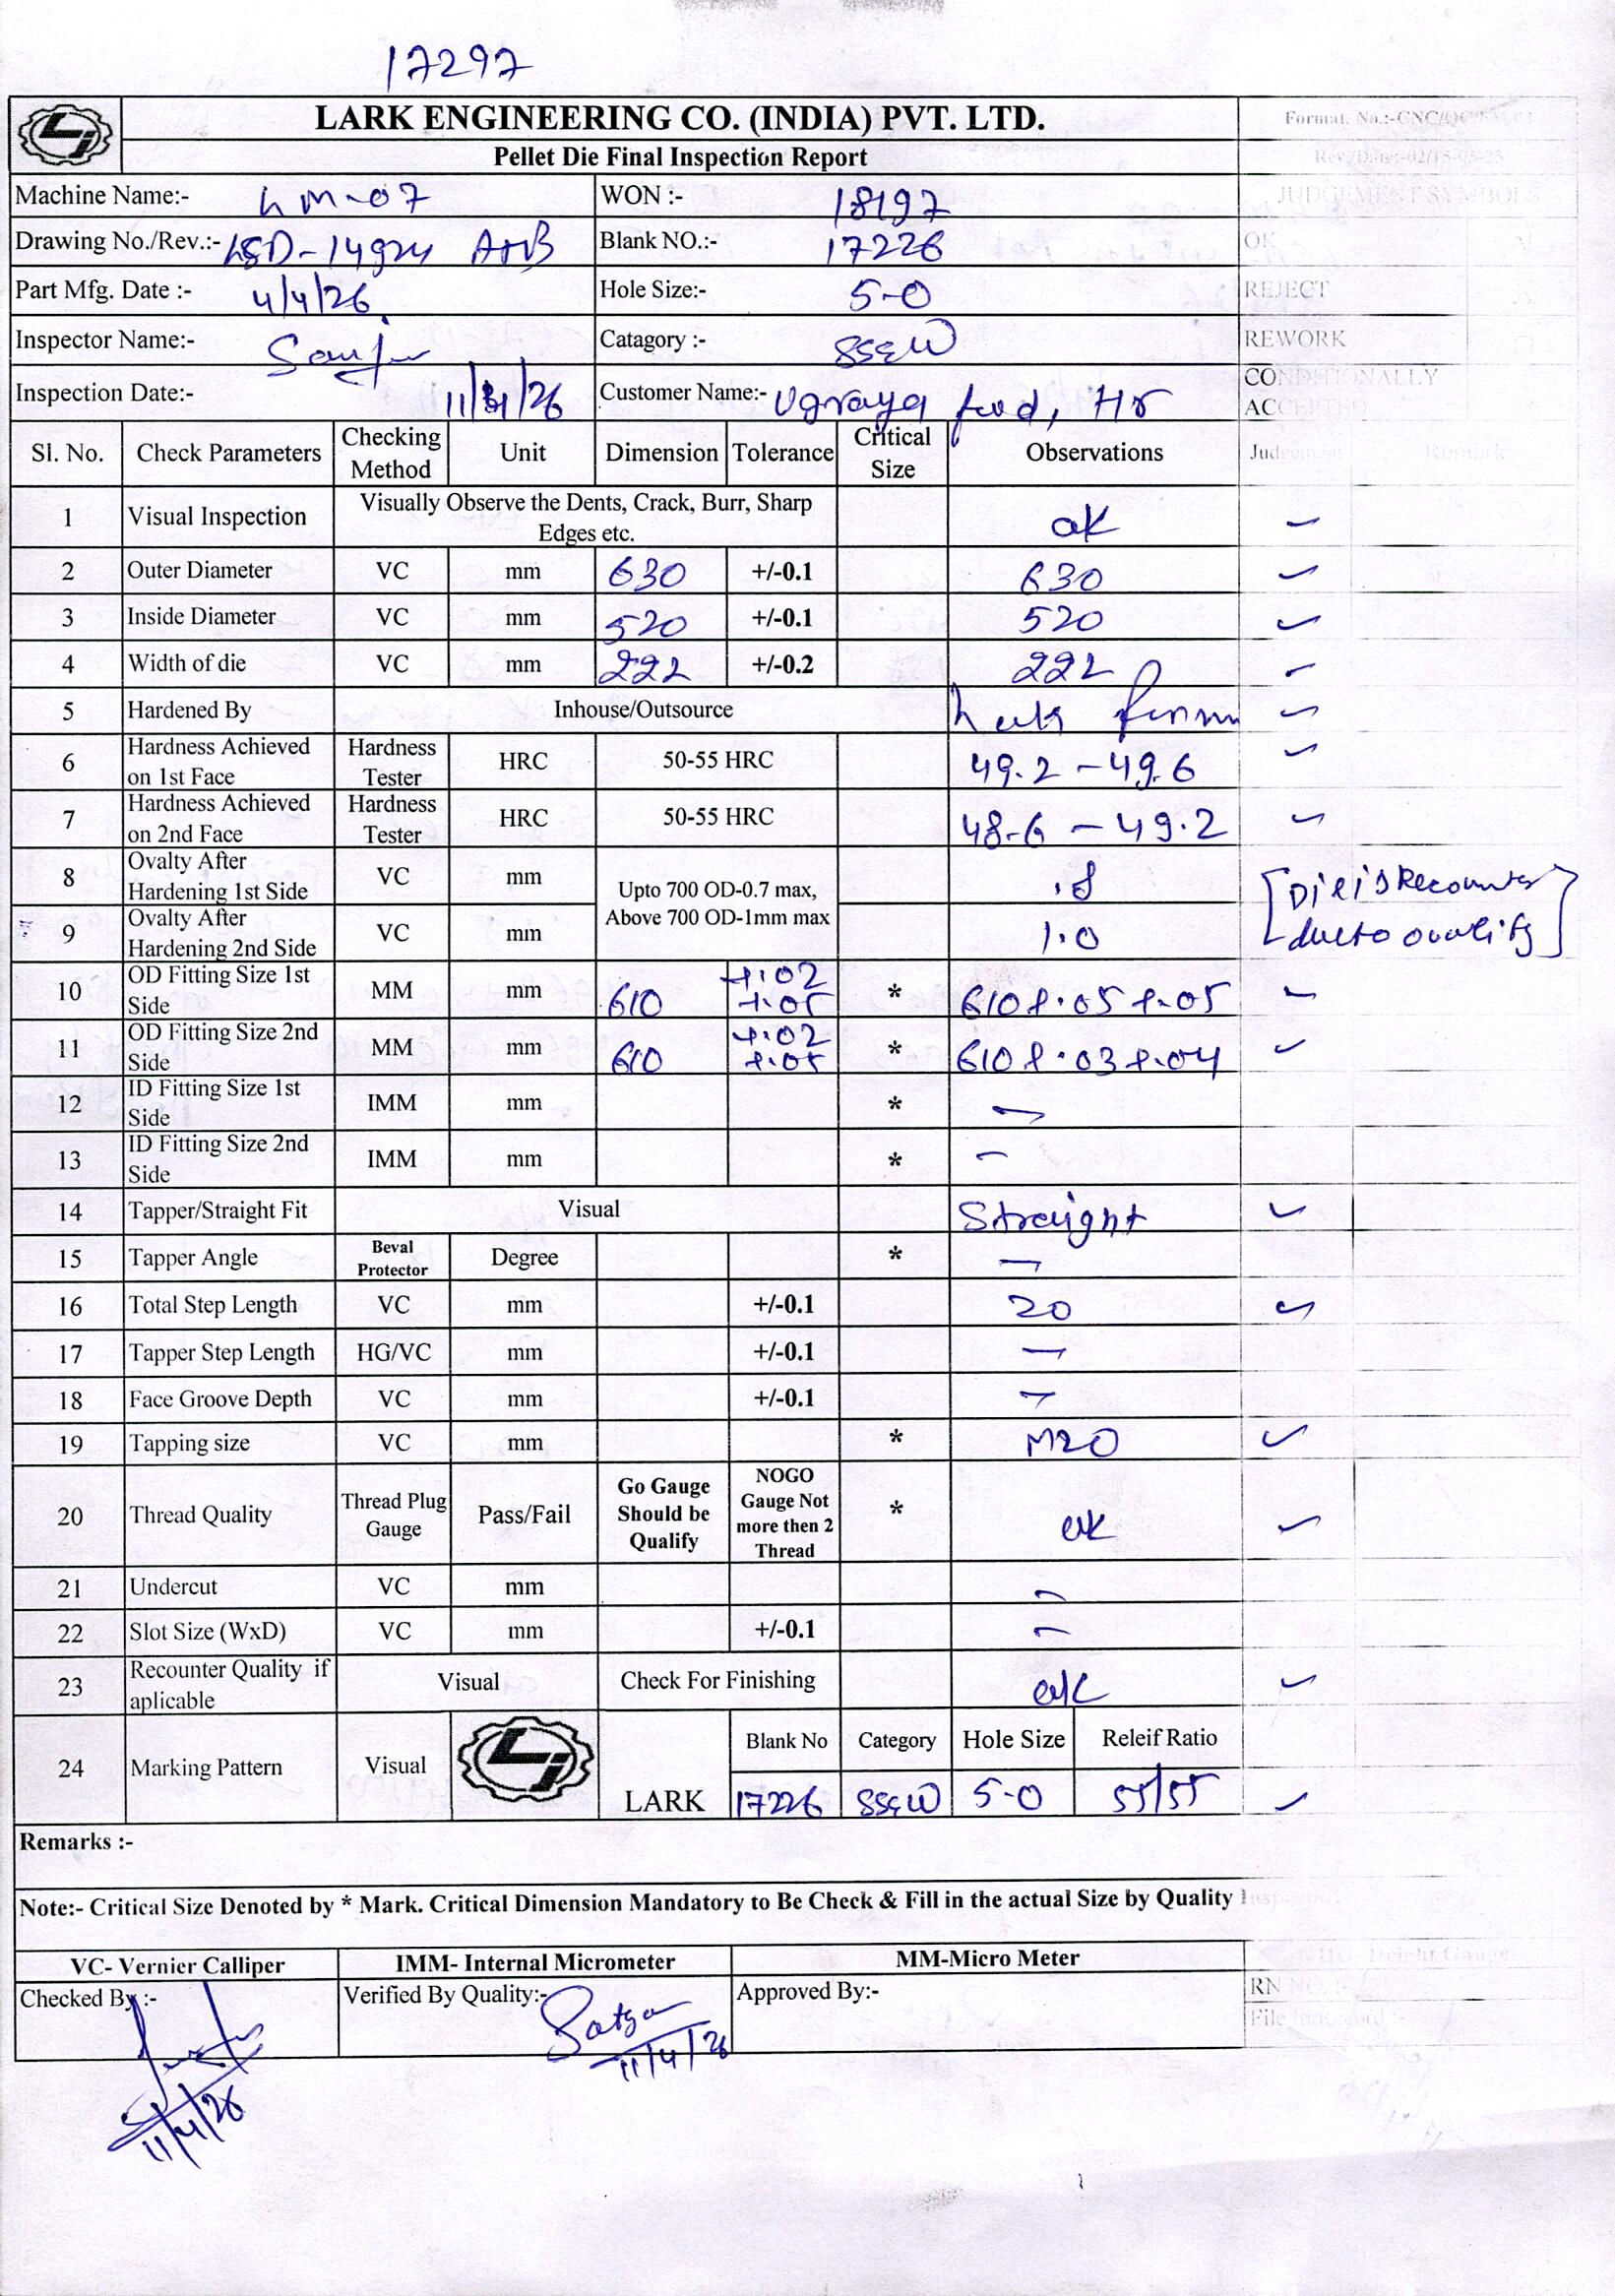 17297
LARK ENGINEERING CO. (INDIA) PVT. LTD.
Format. No.:-CNC/QC
Pellet Die Final Inspection Report
Rev/Date:-02/15-05-25
Machine Name:- LM-07 WON :- 18197 JUDGEMENT SYMBOLS
Drawing No./Rev.:- LSD-14924 A+B Blank NO.:- 17226 OK
Part Mfg. Date :- 4/4/26 Hole Size:- 5-0 REJECT
Inspector Name:- Catagory :- SSEW REWORK
Inspection Date:- 11/4/26 Customer Name:- Ugraya food, Hr CONDITIONALLY ACCEPTED
Sl. No. Check Parameters Checking Method Unit Dimension Tolerance Critical Size Observations Judgement Remark
1 Visual Inspection Visually Observe the Dents, Crack, Burr, Sharp Edges etc. ok ✓
2 Outer Diameter VC mm 630 +/-0.1 630 ✓
3 Inside Diameter VC mm 520 +/-0.1 520 ✓
4 Width of die VC mm 222 +/-0.2 222 ✓
5 Hardened By Inhouse/Outsource ✓
6 Hardness Achieved on 1st Face Hardness Tester HRC 50-55 HRC 49.2 - 49.6 ✓
7 Hardness Achieved on 2nd Face Hardness Tester HRC 50-55 HRC 48.6 - 49.2 ✓
8 Ovalty After Hardening 1st Side VC mm Upto 700 OD-0.7 max, Above 700 OD-1mm max .8 [Die is Recounter
9 Ovalty After Hardening 2nd Side VC mm 1.0 due to ovality]
10 OD Fitting Size 1st Side MM mm 610 +.02 +.05 * 610 +.05 +.05 ✓
11 OD Fitting Size 2nd Side MM mm 610 +.02 +.05 * 610 +.03 +.04 ✓
12 ID Fitting Size 1st Side IMM mm * -
13 ID Fitting Size 2nd Side IMM mm * -
14 Tapper/Straight Fit Visual Straight ✓
15 Tapper Angle Beval Protector Degree * -
16 Total Step Length VC mm +/-0.1 20 ✓
17 Tapper Step Length HG/VC mm +/-0.1 -
18 Face Groove Depth VC mm +/-0.1 -
19 Tapping size VC mm * M20 ✓
20 Thread Quality Thread Plug Gauge Pass/Fail Go Gauge Should be Qualify NOGO Gauge Not more then 2 Thread * ok ✓
21 Undercut VC mm -
22 Slot Size (WxD) VC mm +/-0.1 -
23 Recounter Quality if aplicable Visual Check For Finishing ok ✓
24 Marking Pattern Visual LARK Blank No Category Hole Size Releif Ratio
17226 SSEW 5-0 55/55 ✓
Remarks :-
Note:- Critical Size Denoted by * Mark. Critical Dimension Mandatory to Be Check & Fill in the actual Size by Quality
VC- Vernier Calliper IMM- Internal Micrometer MM-Micro Meter HG- Height Gauge
Checked By :- Verified By Quality:- Satya Approved By:- RN NO. :-
11/4/26
11/4/26